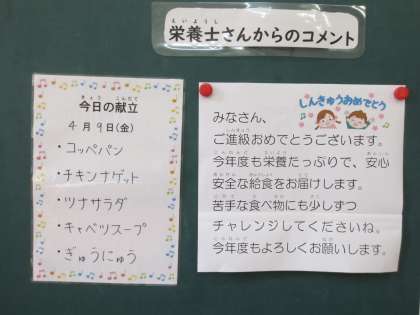 栄養士さんからのコメント
今日の献立
4月9日(金)
・コッペパン
・チキンナゲット
・ツナサラダ
・キャベツスープ
・ぎゅうにゅう
しんきゅうおめでとう
みなさん、
ご進級おめでとうございます。
今年度も栄養たっぷりで、安心
安全な給食をお届けします。
苦手な食べ物にも少しずつ
チャレンジしてくださいね。
今年度もよろしくお願いします。